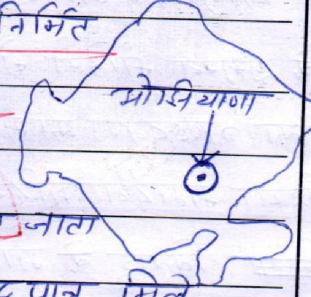 निर्मित
ओसियाणा
जाता
पात्र मिले